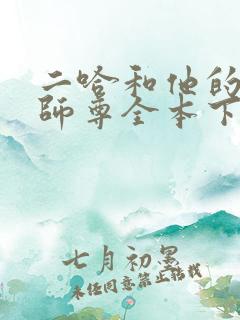 二哈和他的
師尊全本下
七月初墨
未经同意禁止转载